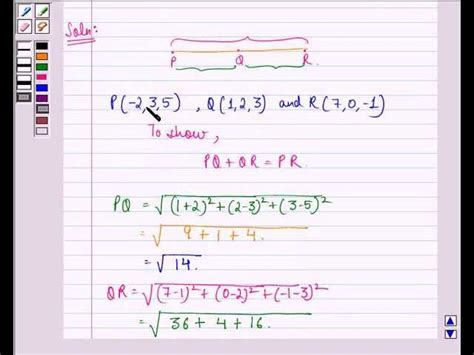 Soln:
P Q R
P(-2,3,5) , Q(1,2,3) and R(7,0,-1)
To show,
PQ + QR = PR.
PQ = √(1+2)² + (2-3)² + (3-5)²
= √9 + 1 + 4.
= √14.
QR = √(7-1)² + (0-2)² + (-1-3)²
= √36 + 4 + 16.